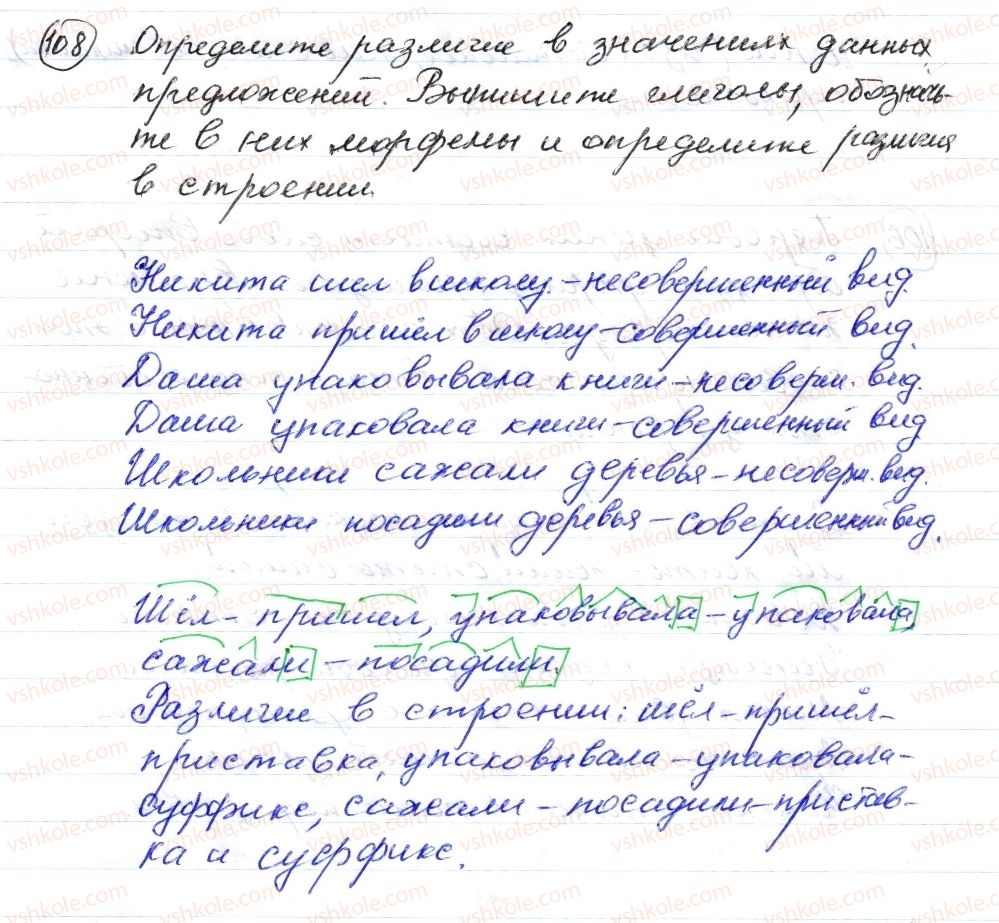 108 Определите различие в значениях данных
предложений. Выпишите глаголы, обозначь-
те в них морфемы и определите различия
в строении.
Никита шел в школу. - несовершенный вид
Никита пришёл в школу - совершенный вид.
Даша упаковывала книги - несоверш. вид.
Даша упаковала книги - совершенный вид
Школьники сажали деревья - несоверш. вид.
Школьники посадили деревья - совершенный вид.
Шёл - пришел, упаковывала - упаковала,
сажали - посадили.
Различие в строении: шёл - пришёл -
приставка, упаковывала - упаковала -
суффикс, сажали - посадили - пристав-
ка и суффикс.